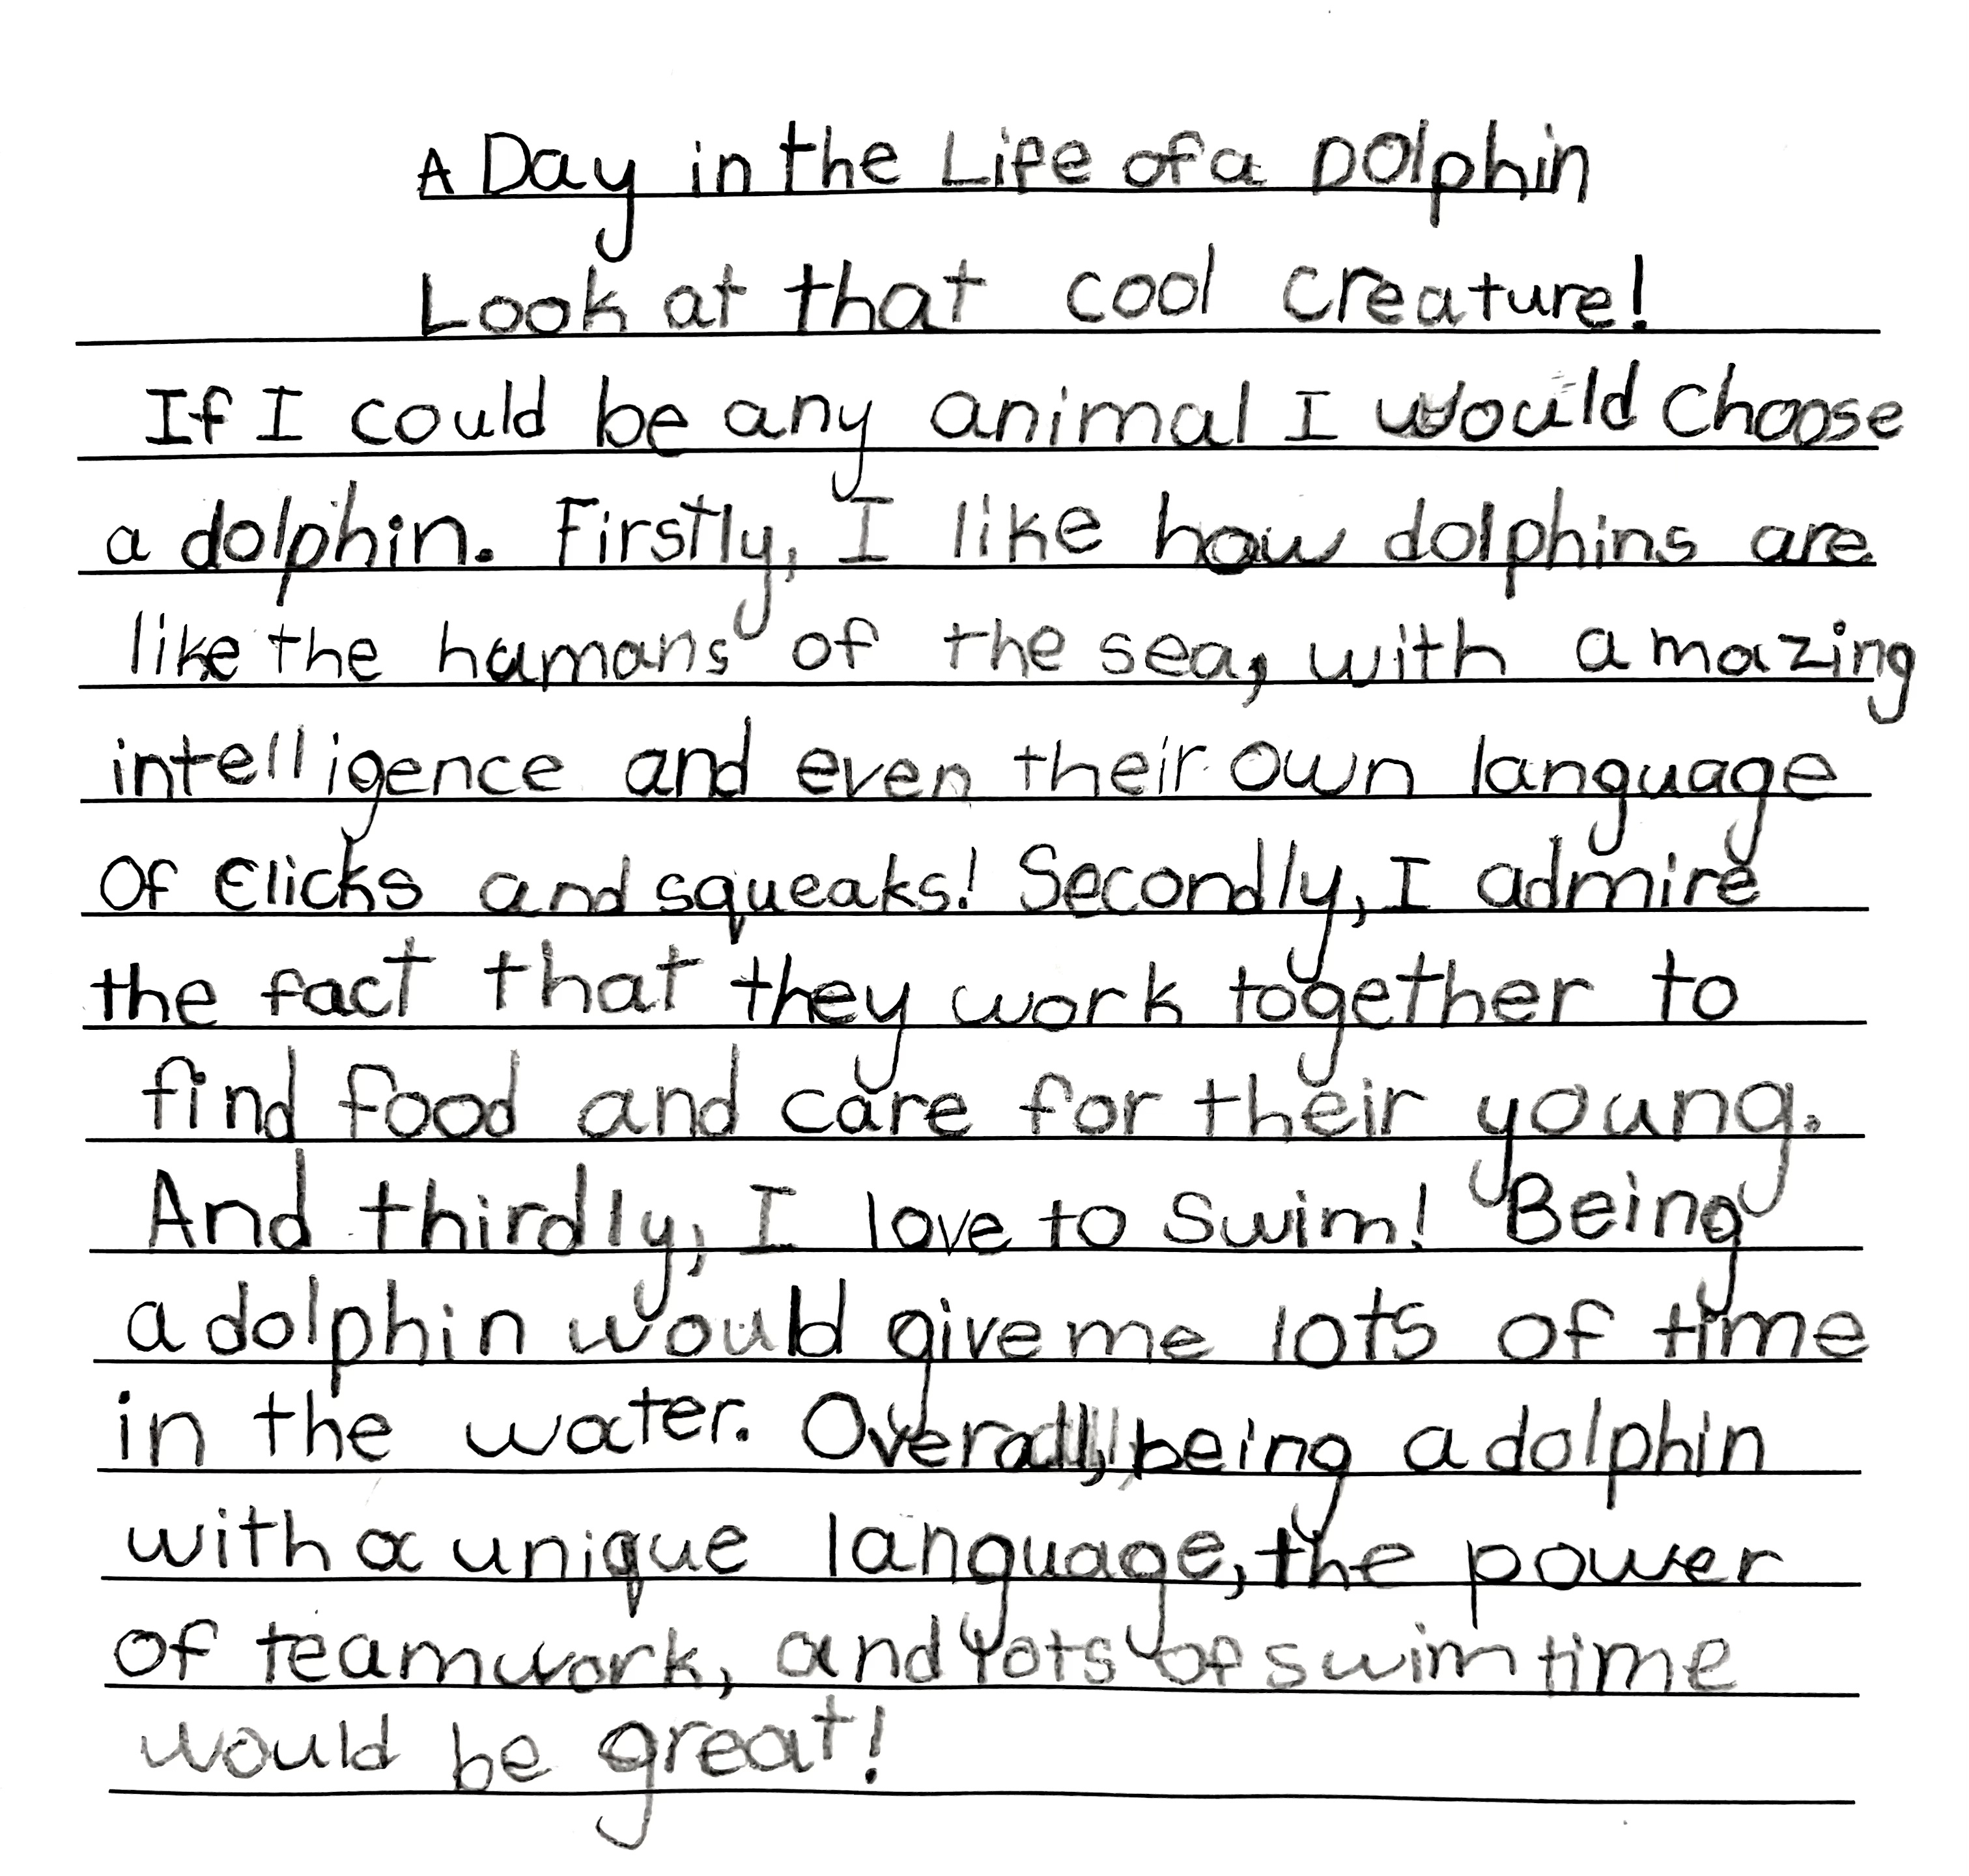 A Day in the Life of a Dolphin
Look at that cool creature!
If I could be any animal I would choose
a dolphin. Firstly, I like how dolphins are
like the humans of the sea, with amazing
intelligence and even their own language
of clicks and squeaks! Secondly, I admire
the fact that they work together to
find food and care for their young.
And thirdly, I love to swim! Being
a dolphin would give me lots of time
in the water. Overall, being a dolphin
with a unique language, the power
of teamwork, and lots of swim time
would be great!